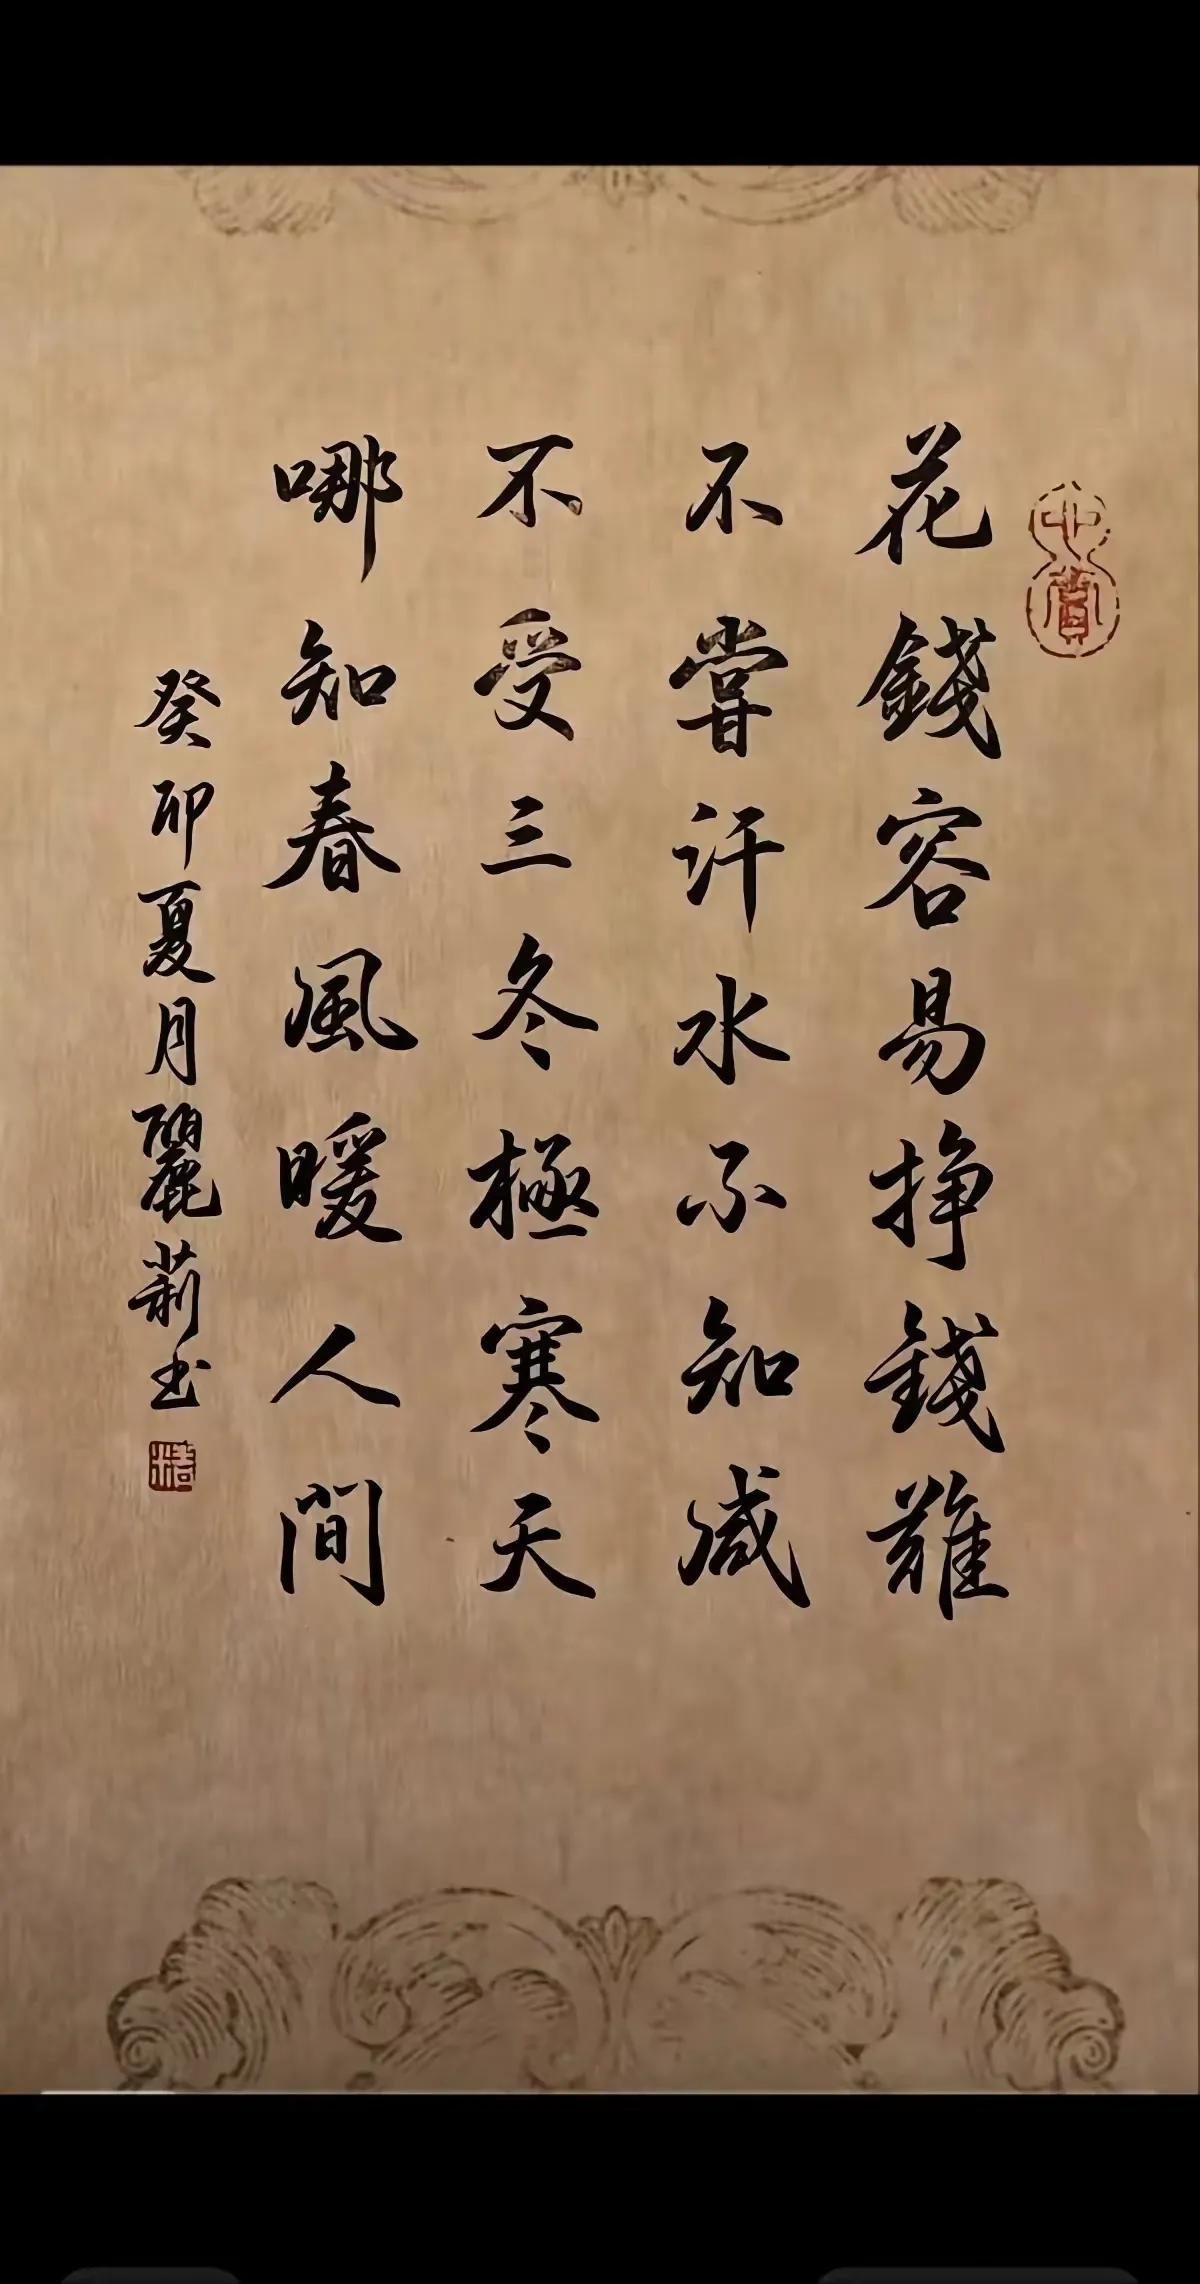 花錢容易挣錢難
不嘗汗水不知咸
不受三冬極寒天
哪知春風暖人間
癸卯夏月麗莉书